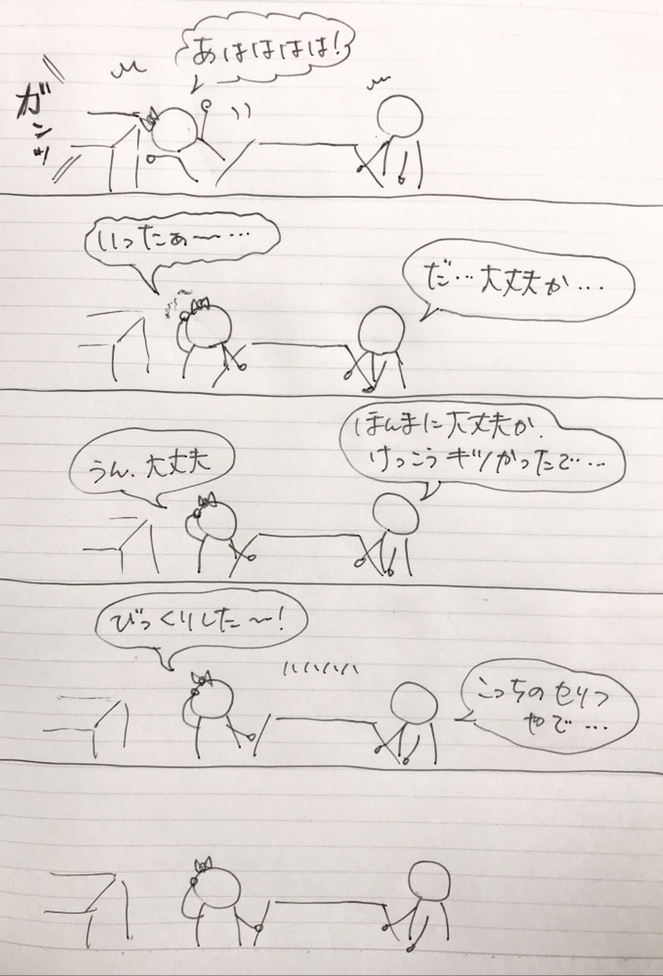 あはははは!
ガンッ
いったぁ〜…
だ…大丈夫か…
うん、大丈夫
ほんまに大丈夫か、
けっこうキツかったで…
びっくりした〜!
こっちのセリフ
やで…